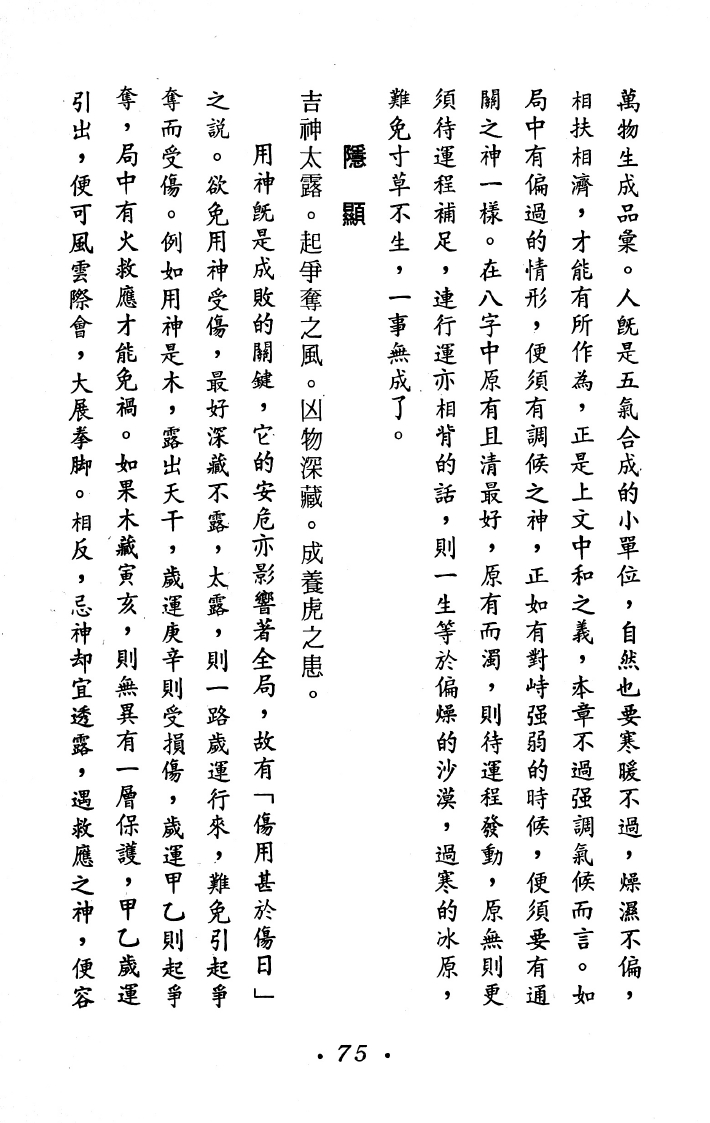 萬物生成品彙。人既是五氣合成的小單位，自然也要寒暖不過，燥濕不偏，
相扶相濟，才能有所作為，正是上文中和之義，本章不過强調氣候而言。如
局中有偏過的情形，便須有調候之神，正如有對峙强弱的時候，便須要有通
關之神一樣。在八字中原有且清最好，原有而濁，則待運程發動，原無則更
須待運程補足，連行運亦相背的話，則一生等於偏燥的沙漠，過寒的冰原，
難免寸草不生，一事無成了。
隱顯
吉神太露。起爭奪之風。凶物深藏。成養虎之患。
用神既是成敗的關鍵，它的安危亦影響著全局，故有「傷用甚於傷日」
之説。欲免用神受傷，最好深藏不露，太露，則一路歲運行來，難免引起爭
奪而受傷。例如用神是木，露出天干，歲運庚辛則受損傷，歲運甲乙則起爭
奪，局中有火救應才能免禍。如果木藏寅亥，則無異有一層保護，甲乙歲運
引出，便可風雲際會，大展拳脚。相反，忌神却宜透露，遇救應之神，便容
• 75 •